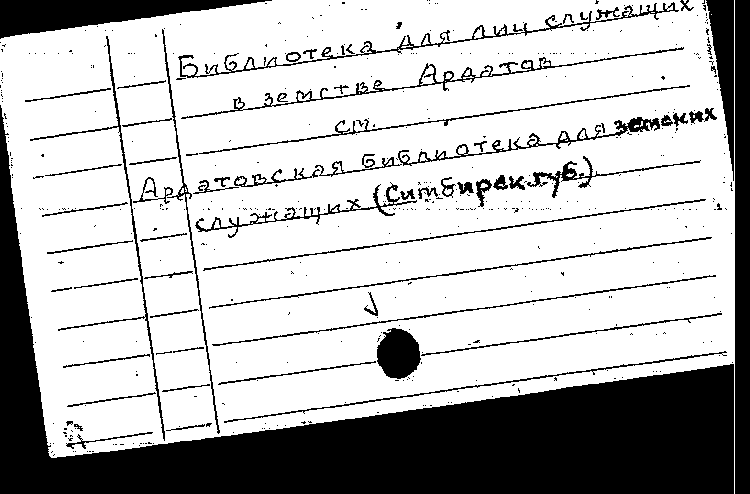 Библиотека для лиц служащих
в земстве Ардатов
см.
Ардатовская библиотека для земских
служащих (Симбирск.губ.)